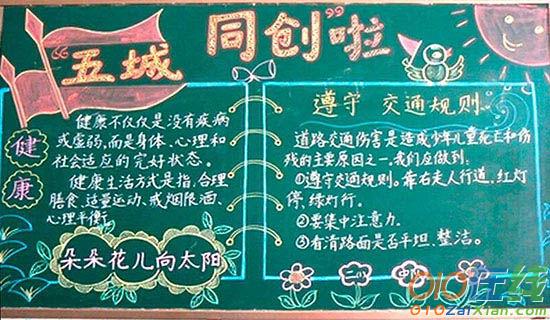 “五城同创”啦
健康
健康不仅仅是没有疾病
或虚弱,而是身体、心理和
社会适应的完好状态。
健康生活方式是指,合理
膳食、适量运动、戒烟限酒、
心理平衡。
朵朵花儿向太阳
遵守 交通规则。
道路交通伤害是造成少年儿童死亡和伤
残的主要原因之一。我们应做到:
①遵守交通规则。靠右走人行道,红灯
停,绿灯行。
②要集中注意力。
③看清路面是否平坦、整洁。
二(
中队
010在线
010zaixian.com